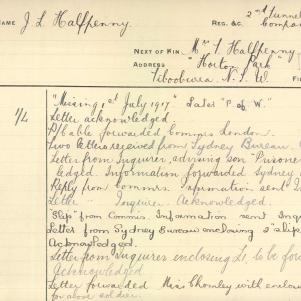 NAME J. L. Halfpenny
REG. &C. 2nd Tunnel
Compan
NEXT OF KIN Mrs. F. Halfpenny
ADDRESS "Horton Park"
Tibooburra N.S.W
"Missing 1st July 1917" Later "P. of W."
1/4 Letter acknowledged.
P/Cable forwarded Commrs London.
Two letters received from Sydney Bureau.
Letter from Inquirer, advising son "Prisone
ledged. Information forwarded Sydney
Reply from Commrs. Information sent
Letter " Inquirer. Acknowledged.
"Slip" from Commrs. Information sent Inqu
Letter from Sydney Bureau enclosing 2 "slip
Acknowledged.
Letter from Inquirer enclosing £1. to be for
Acknowledged
Letter forwarded Miss Chomley with enclos
for above soldier.